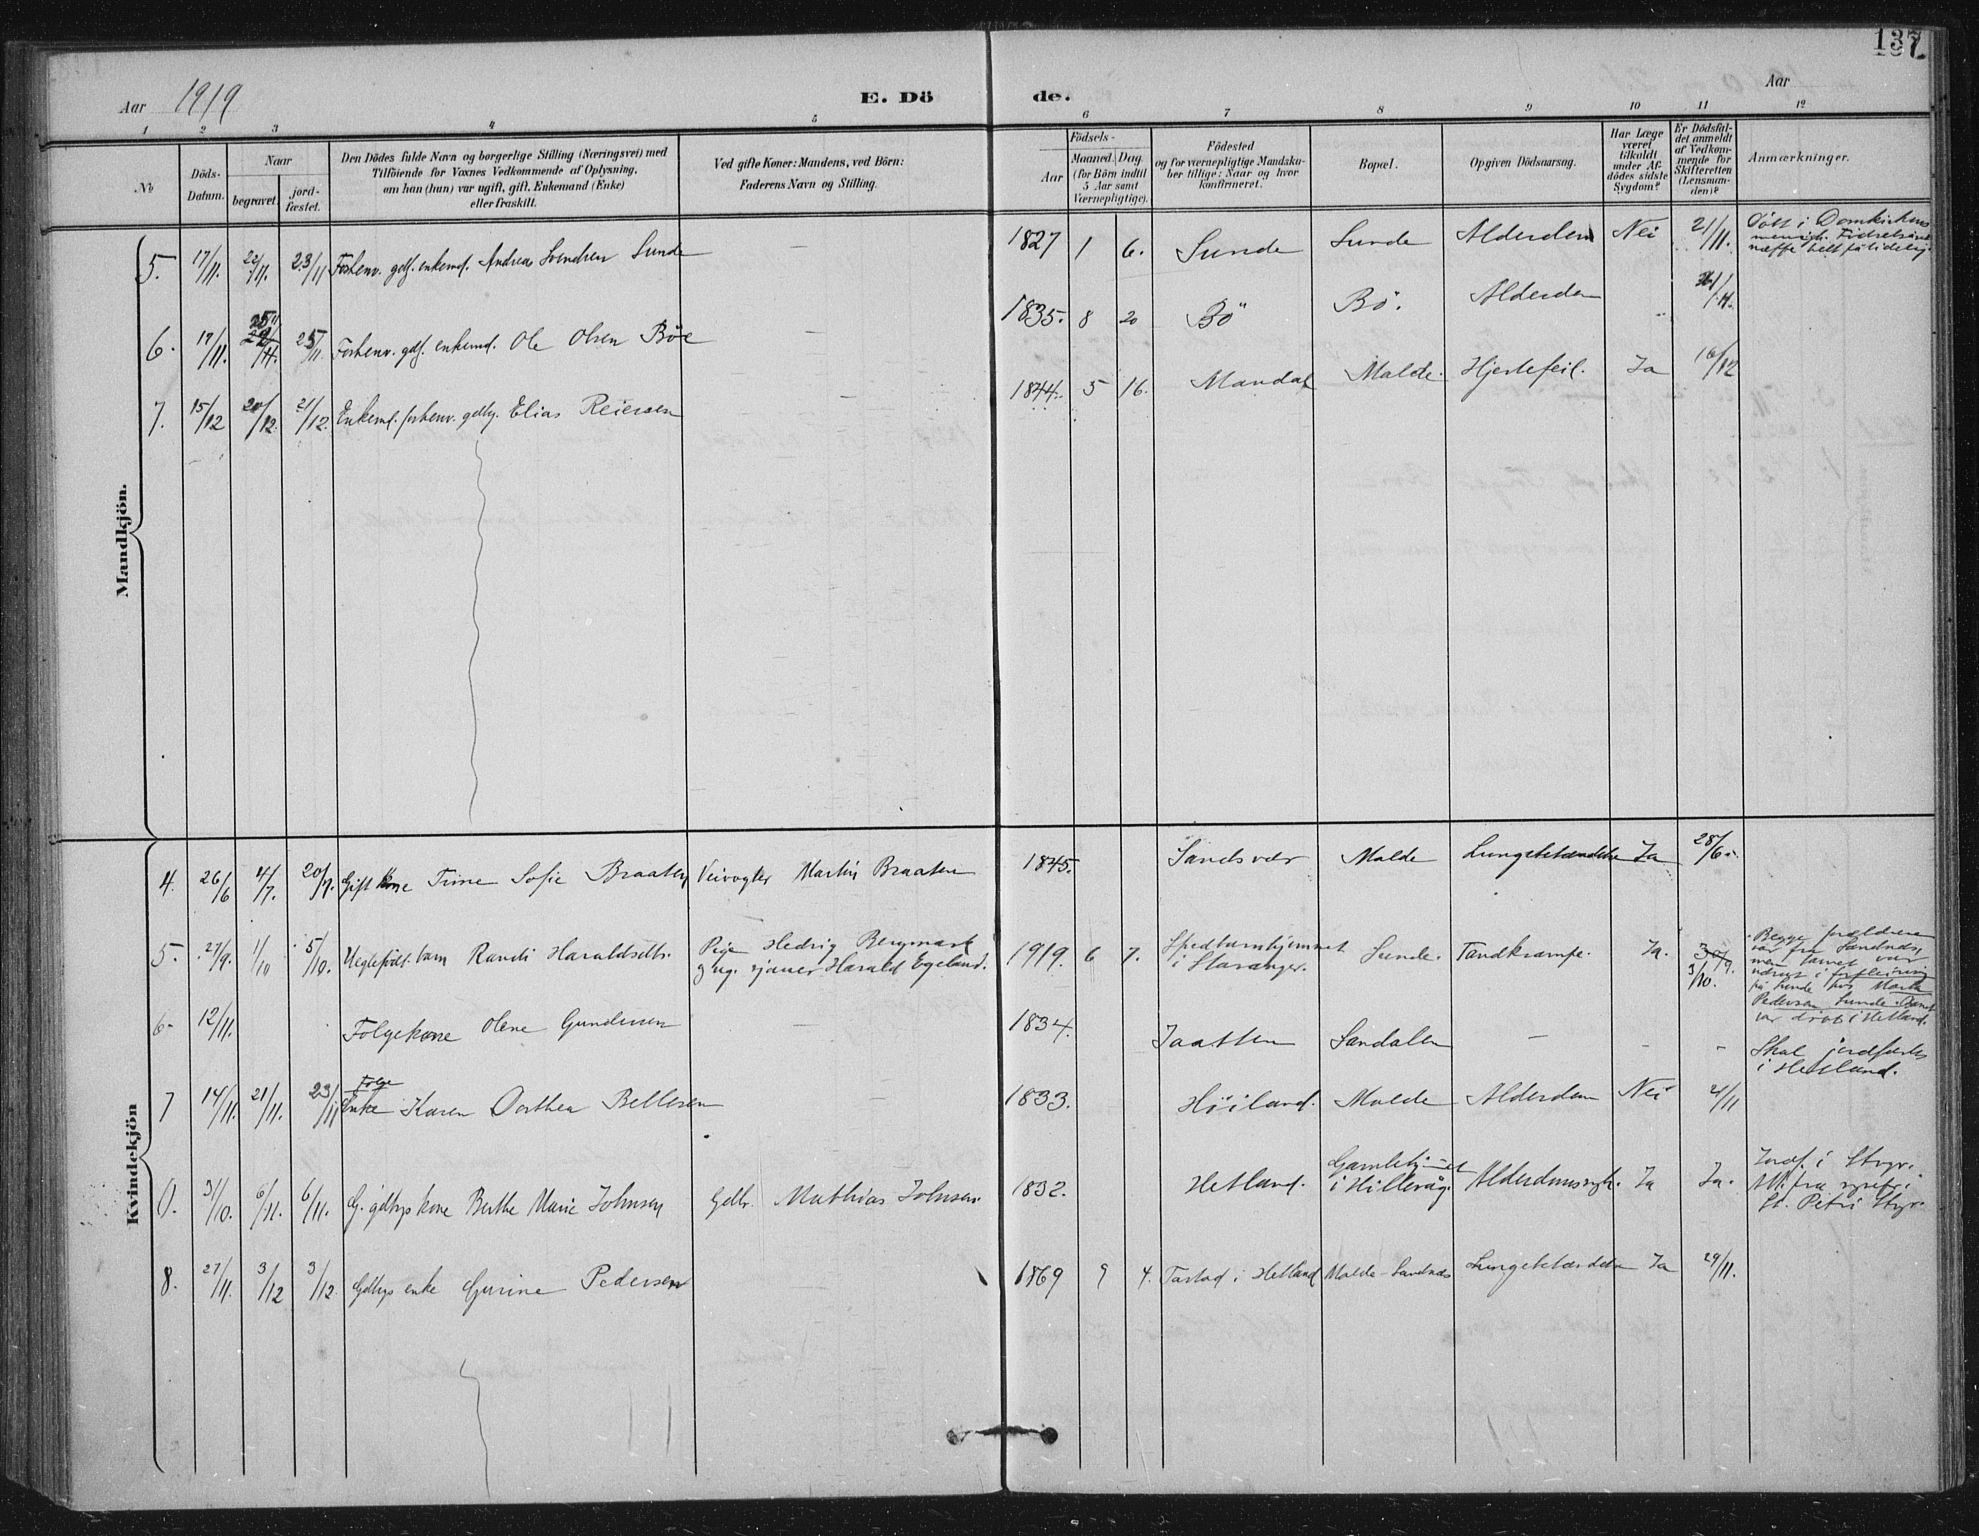 137
Aar 1919
E. Dö de.
Aar
1 2 3 4 5 6 7 8 9 10 11 12
No
Döds-Datum.
Naar
begravet.
jord-fæstet.
Den Dödes fulde Navn og borgerlige Stilling (Næringsvei) med
Tilföiende for Voxnes Vedkommende af Oplysning,
om han (hun) var ugift, gift, Enkemand (Enke)
eller fraskilt.
Ved gifte Koner: Mandens, ved Börn:
Faderens Navn og Stilling.
Födsels-
Aar
Maaned. Dag.
(for Börn indtil
5 Aar samt
Værnepligtige).
Födested
og for værnepligtige Mandska-
ber tillige: Naar og hvor
konfirmeret.
Bopæl.
Opgiven Dödsaarsag.
Har Læge
været
tilkaldt
under Af-
dödes sidste
Sygdom?
Er Dödsfal-
det anmeldt
af Vedkom-
mende for
Skifteretten
(Lensman-
den)?
Anmærkninger.
Mandkjön.
5. 17/11. 22/11. 23/11 Forhenv. gdf. enkemd. Andreas Svendsen Sunde — 1827 1 6. Sunde Sunde Alderdom Nei 21/11. Født i Domkirkens
6. 17/11. 25/11 25/11 Forhenv. gdf. enkemd. Ole Olsen Böe — 1835. 8 20 Bö Bö. Alderdom
7. 15/12 20/12. 21/12. Enkemd. forhenv. gdbr. Elias Reiersen — 1844. 5 16. Mandal Malde. Hjertefeil. Ja 16/12
Kvindekjön
4. 26/6 4/7. 20/7. Gift kone Time Sofie Braaten Veivogter Martin Braaten 1845. Sandsvær Malde Lungebetændelse Ja 28/6.
5. 27/9. 1/10 5/10. Uegtefödt barn Randi Haraldsdtr. Pige Hedvig Bergmark
g ug. sjauer Harald Egeland. 1919. 6 7. Spedbarnhjemmet
i Stavanger. Sunde. Tandkrampe. Ja. 30/9.
3/10. Begge forældrene
var fra Sandnæs,
men barnet var
udsat i forpleining
på Sunde hos Marta
Pedersen Sunde.
var döbt i Hetland.
6. 12/11. Folgekone Olene Gundersen — 1834. Jaatten Sandalen — - - Skal jordfæstes
i Hetland.
7 14/11. 21/11. 23/11 Folge
Enke Karen Dorthea Bellesen — 1833. Höiland. Malde Alderdom Nei 21/11
0. 31/10. 6/11. 6/11. G. gdbrs kone Berthe Marie Johnsen Gdbr. Mathias Johnsen. 1832. Hetland. Gamlehjemmet
i Hillevåg. Alderdomssygd. Ja Ja. Jordf. i Stvgr.
St. Petri Stvgr.
8. 27/11. 3/12 3/12. Gdbrs enke Gurine Pedersen 1869 9 4. Tastad i Hetland Malde - Sandnæs Lungebetændelse Ja 29/11.